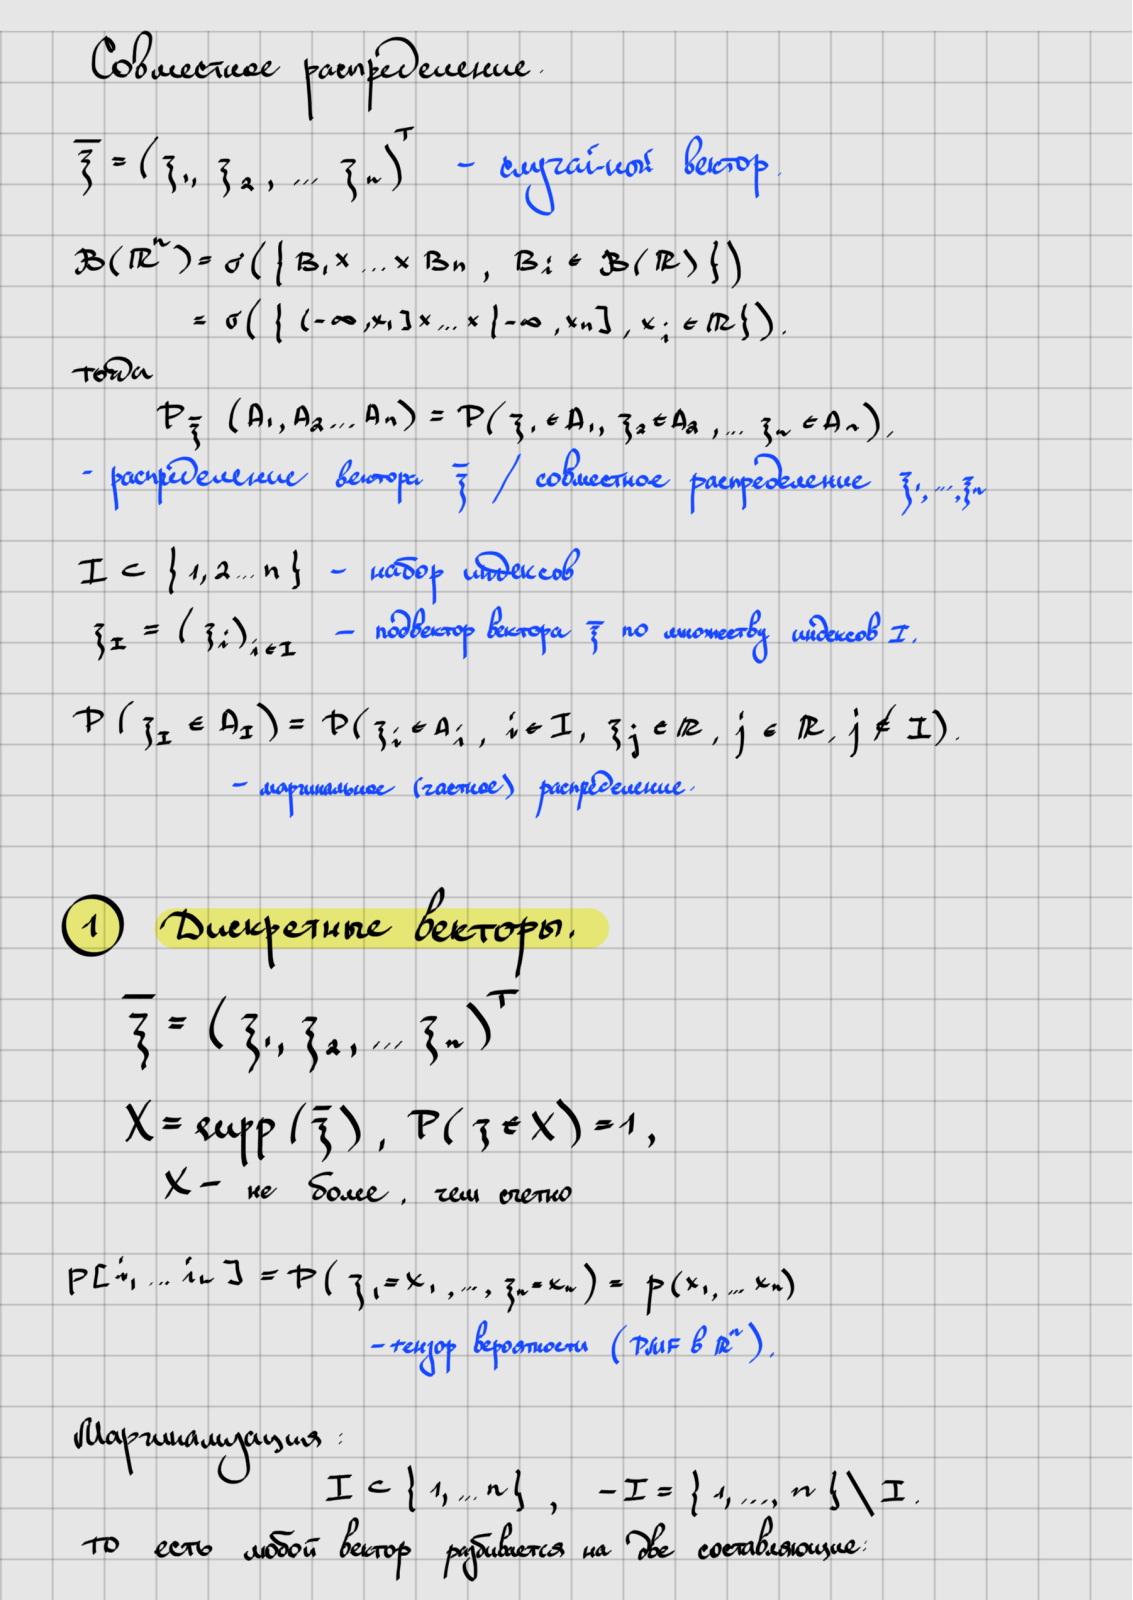 Совместное распределение.
ξ̄ = (ξ₁, ξ₂, ... ξₙ)ᵀ - случайный вектор.
ℬ(ℝⁿ) = σ({B₁ × ... × Bₙ, Bᵢ ∈ ℬ(ℝ)})
= σ({(-∞, x₁] × ... × (-∞, xₙ], xᵢ ∈ ℝ}).
тогда
P_ξ̄ (A₁, A₂ ... Aₙ) = P(ξ₁ ∈ A₁, ξ₂ ∈ A₂, ... ξₙ ∈ Aₙ).
- распределение вектора ξ̄ / совместное распределение ξ₁, ..., ξₙ
I ⊂ {1, 2 ... n} - набор индексов
ξ_I = (ξᵢ)_{i ∈ I} - подвектор вектора ξ̄ по множеству индексов I.
P(ξ_I ∈ A_I) = P(ξᵢ ∈ Aᵢ, i ∈ I, ξⱼ ∈ ℝ, j ∈ ℝ, j ∉ I).
- маргинальное (частное) распределение.
1 Дискретные векторы.
ξ̄ = (ξ₁, ξ₂, ... ξₙ)ᵀ
X = supp(ξ̄), P(ξ ∈ X) = 1,
X - не более, чем счетно
P[i₁, ... iₙ] = P(ξ₁ = x₁, ..., ξₙ = xₙ) = p(x₁, ... xₙ)
- тензор вероятности (PMF в ℝⁿ).
Маргинализация:
I ⊂ {1, ... n}, -I = {1, ..., n} \ I.
то есть любой вектор разбивается на две составляющие: